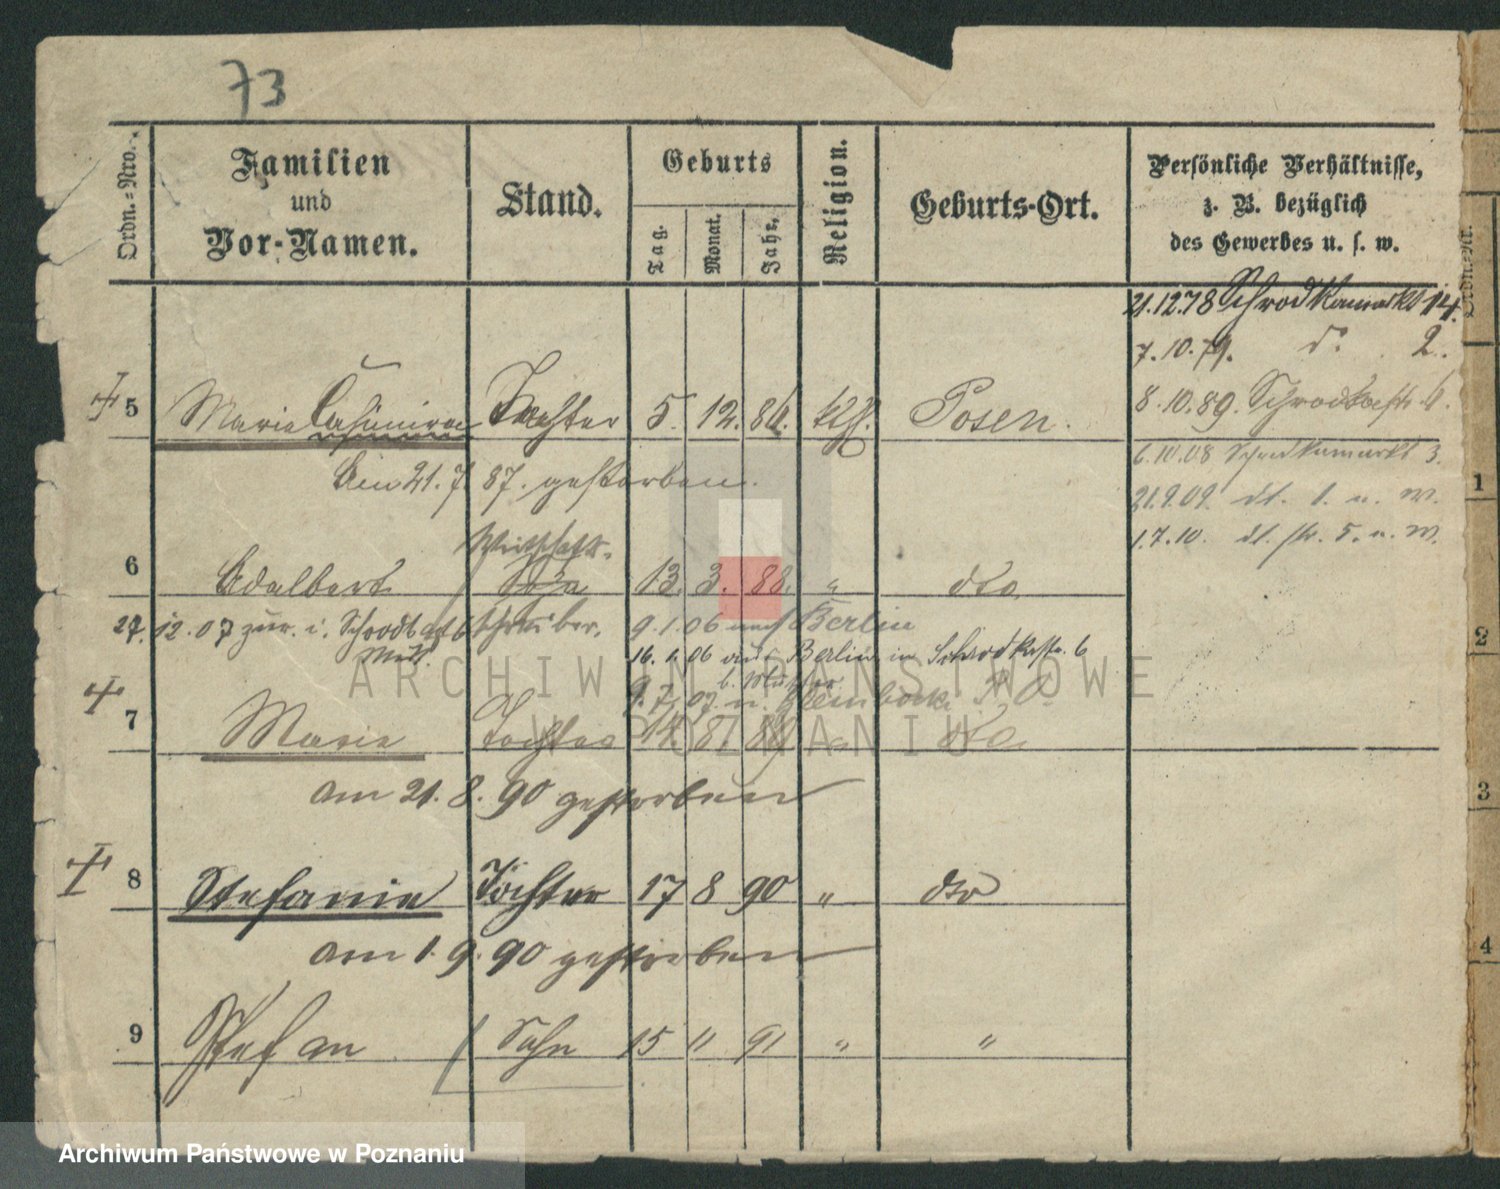 73
Ordn.=Nro.
Familien
und
Vor=Namen.
Stand.
Geburts
Tag.
Monat.
Jahr.
Religion.
Geburts=Ort.
Persönliche Verhältnisse,
z. B. bezüglich
des Gewerbes u. s. w.
21.12.78 Schrodkamarkt 14.
7.10.79. d. 2.
8.10.89. Schrodkastr. 6.
6.10.08 Schrodkamarkt 3.
21.9.09. dt. 1. u. W.
1.7.10. dt. str. 5. u. W.
5 Marie Casimira Tochter 5. 12. 86. kth. Posen.
Am 21.7.87. gestorben.
6 Adalbert Wirthschafts- 13. 3. 88. " dto.
schreiber.
27.12.07 zur. i.
9.1.06 nach Berlin
16.1.06 aus Berlin in Schrodkastr. 6
9.7.07 n.
7 Marie Tochter 14 8. 89 " dto.
am 21.8.90 gestorben
8 Stefanie Tochter 17 8 90 " dto
am 1.9.90 gestorben
9 Stefan Sohn 15 " 91 " "
Ordn.=Nr.
1
2
3
4
ARCHIWUM PAŃSTWOWE
W POZNANIU
Archiwum Państwowe w Poznaniu